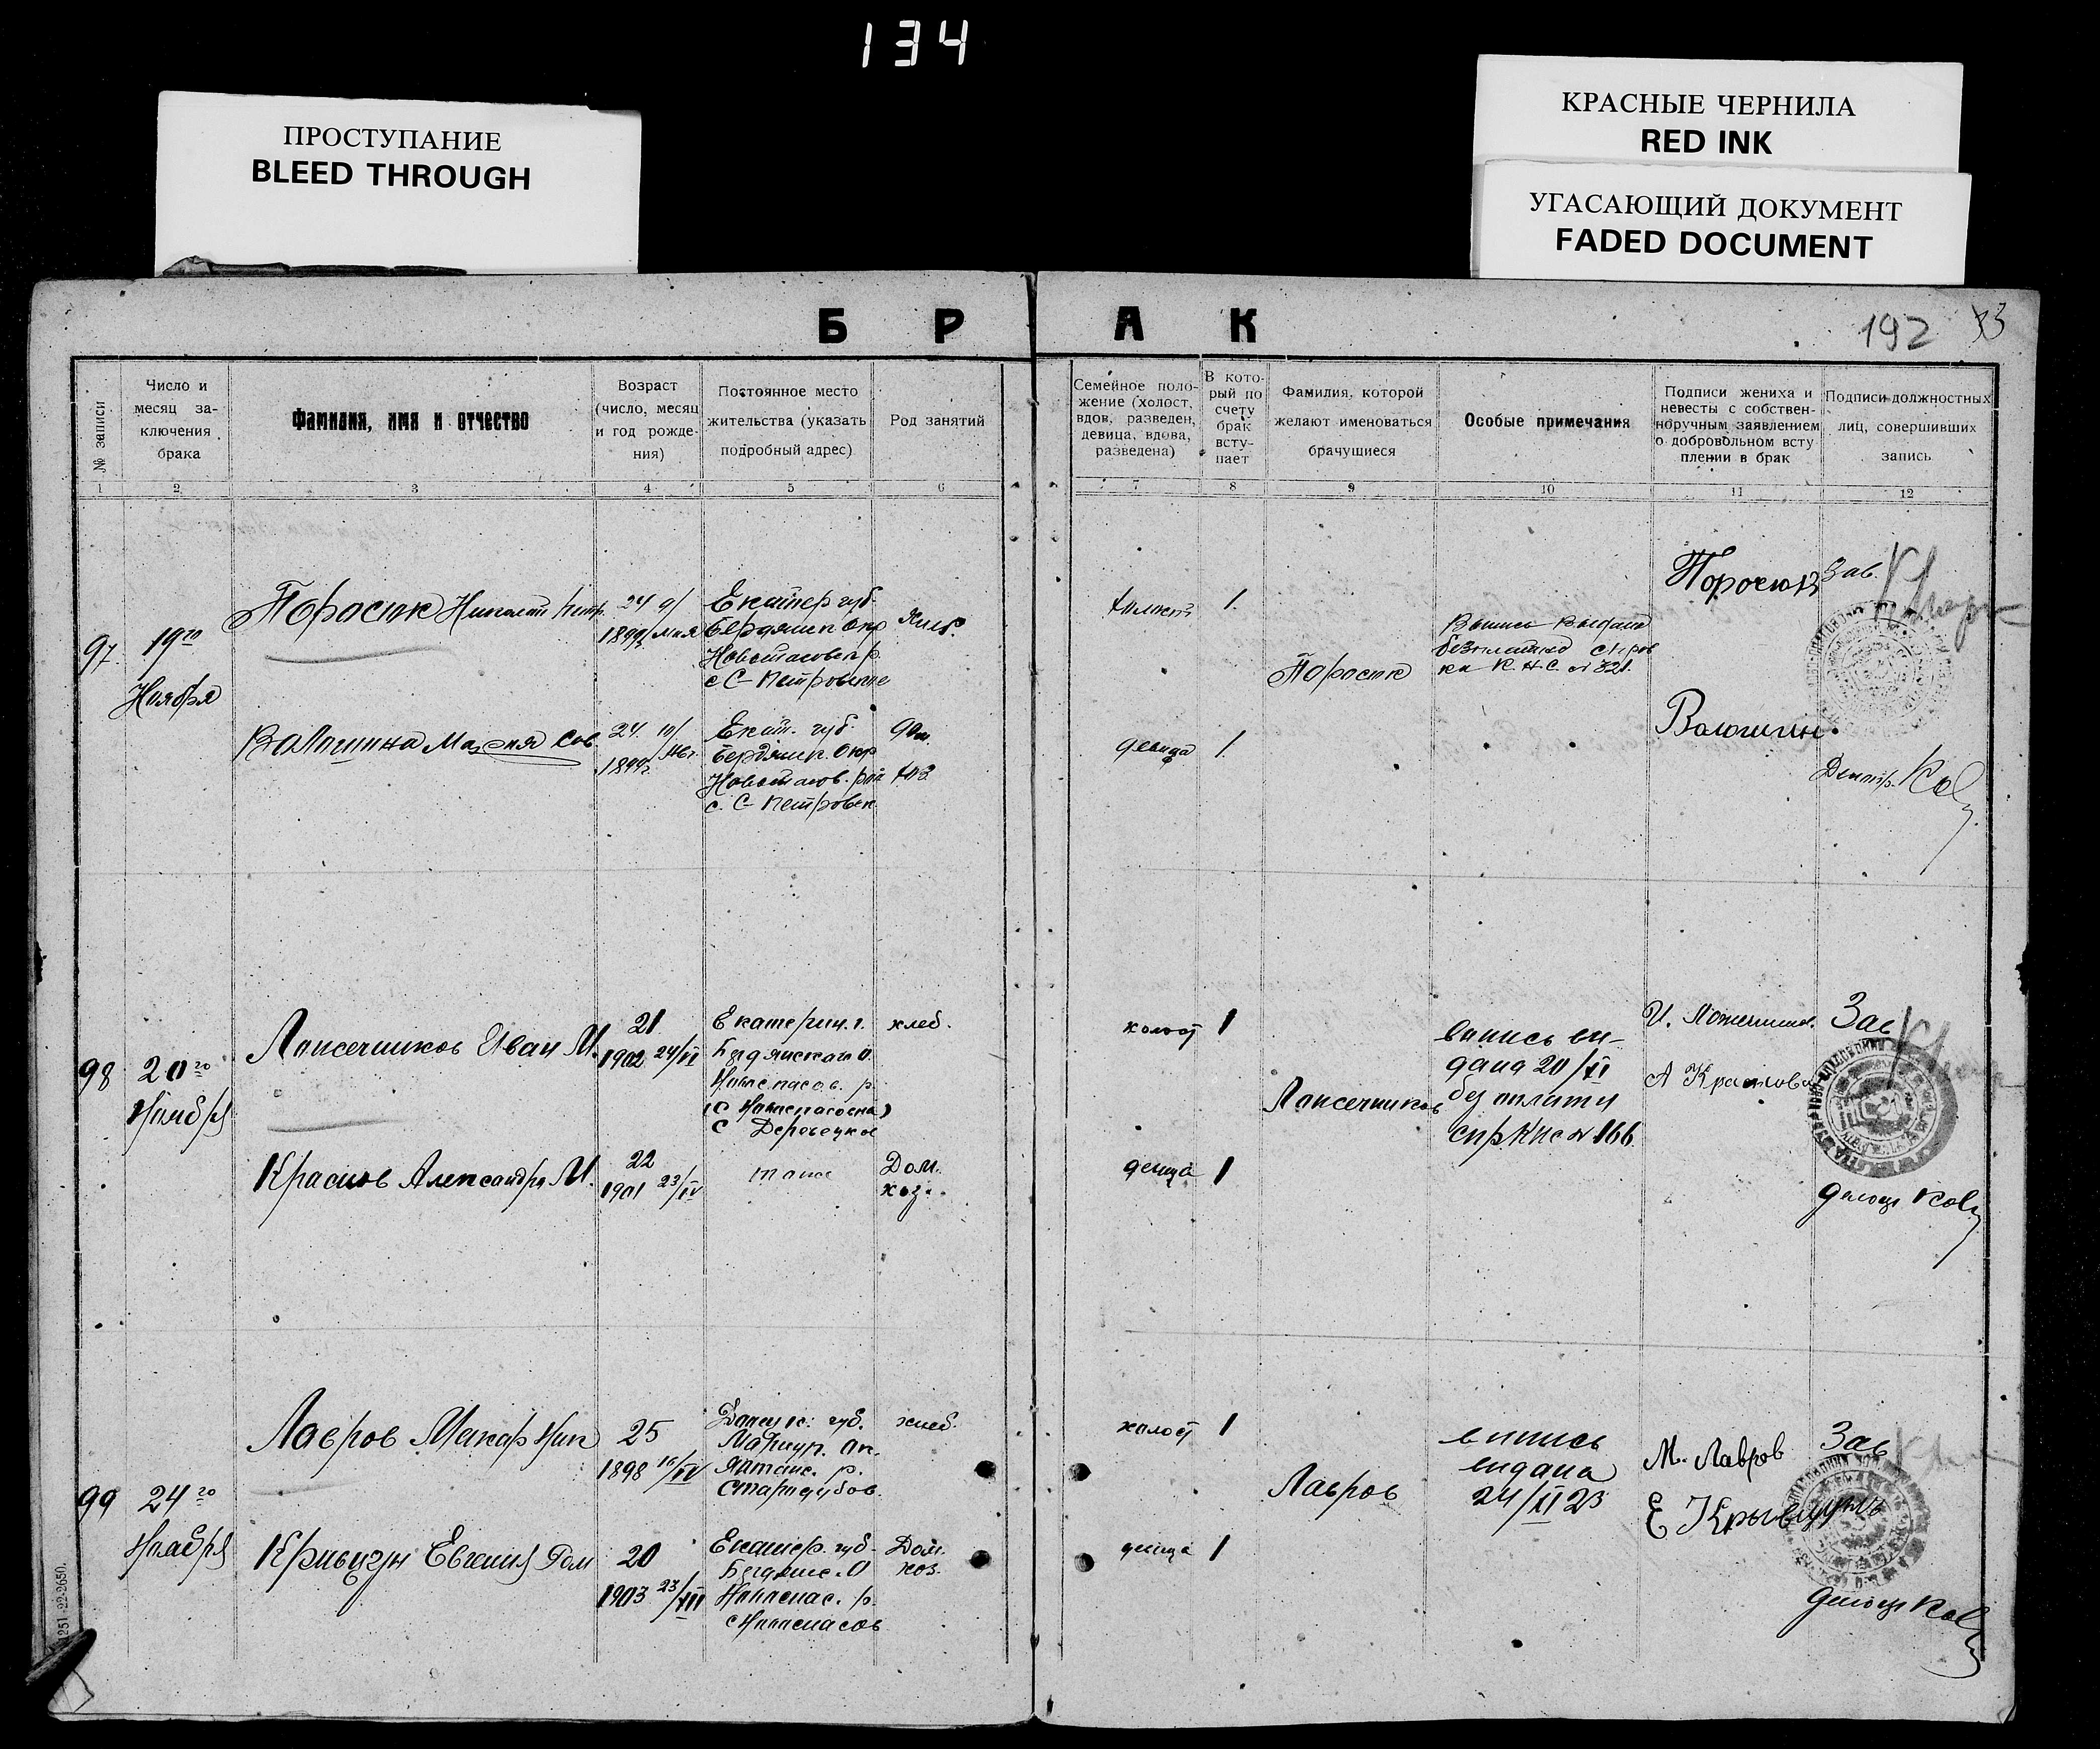 134
ПРОСТУПАНИЕ
BLEED THROUGH
КРАСНЫЕ ЧЕРНИЛА
RED INK
УГАСАЮЩИЙ ДОКУМЕНТ
FADED DOCUMENT
БРАК
192
№ записи
Число и
месяц за-
ключения
брака
Фамилия, имя и отчество
Возраст
(число, месяц
и год рожде-
ния)
Постоянное место
жительства (указать
подробный адрес)
Род занятий
Семейное поло-
жение (холост,
вдов, разведен,
девица, вдова,
разведена)
В кото-
рый по
счету
брак
всту-
пает
Фамилия, которой
желают именоваться
брачущиеся
Особые примечания
Подписи жениха и
невесты с собствен-
норучным заявлением
о добровольном всту
плении в брак
Подписи должностных
лиц, совершивших
запись
1 2 3 4 5 6 7 8 9 10 11 12
97
19го
Ноября
Поросюк Николай
24 9/
1899 мая
Екатер губ.
Бердянск Окр
с С-Петровске
холост
1.
Поросюк
Выпись выдана
безплатно справ
ка К.Н.С. № 321.
Поросюк
Зав.
Волошина Мария Сав
24 10/
1899г.
Екат. губ.
Бердянск. Окр
Новоспасов. рай
с. С-Петровск.
Дом.
хоз
девица
1.
Волошин
98
20го
Ноября
Иван М.
21
1902 24/VI
Екатерин. г.
Бердянского О.
Новоспасов. р.
хлеб.
холост
1
выпись вы-
дана 20/XI
без оплаты
спр КНС № 166
И.
Зав
А Краснова
Краснов Александра М.
22
1901 23/IV
тоже
Дом.
хоз.
девица
1
99
24го
Ноября
Лавров Макар Ник
25
1898
губ.
Мариуп. ок.
р.
Стародубов.
хлеб.
холост
1
Лавров
выпись
выдана
24/XI 23
М. Лавров
Зав
Кривцун Евгения Ром
20
1903 23/XII
Екатер. губ.
Бердянс. О
Новоспас. р.
с Новоспасов
Дом.
хоз.
девица
1
Е Крывцунъ
1251-22-2650.